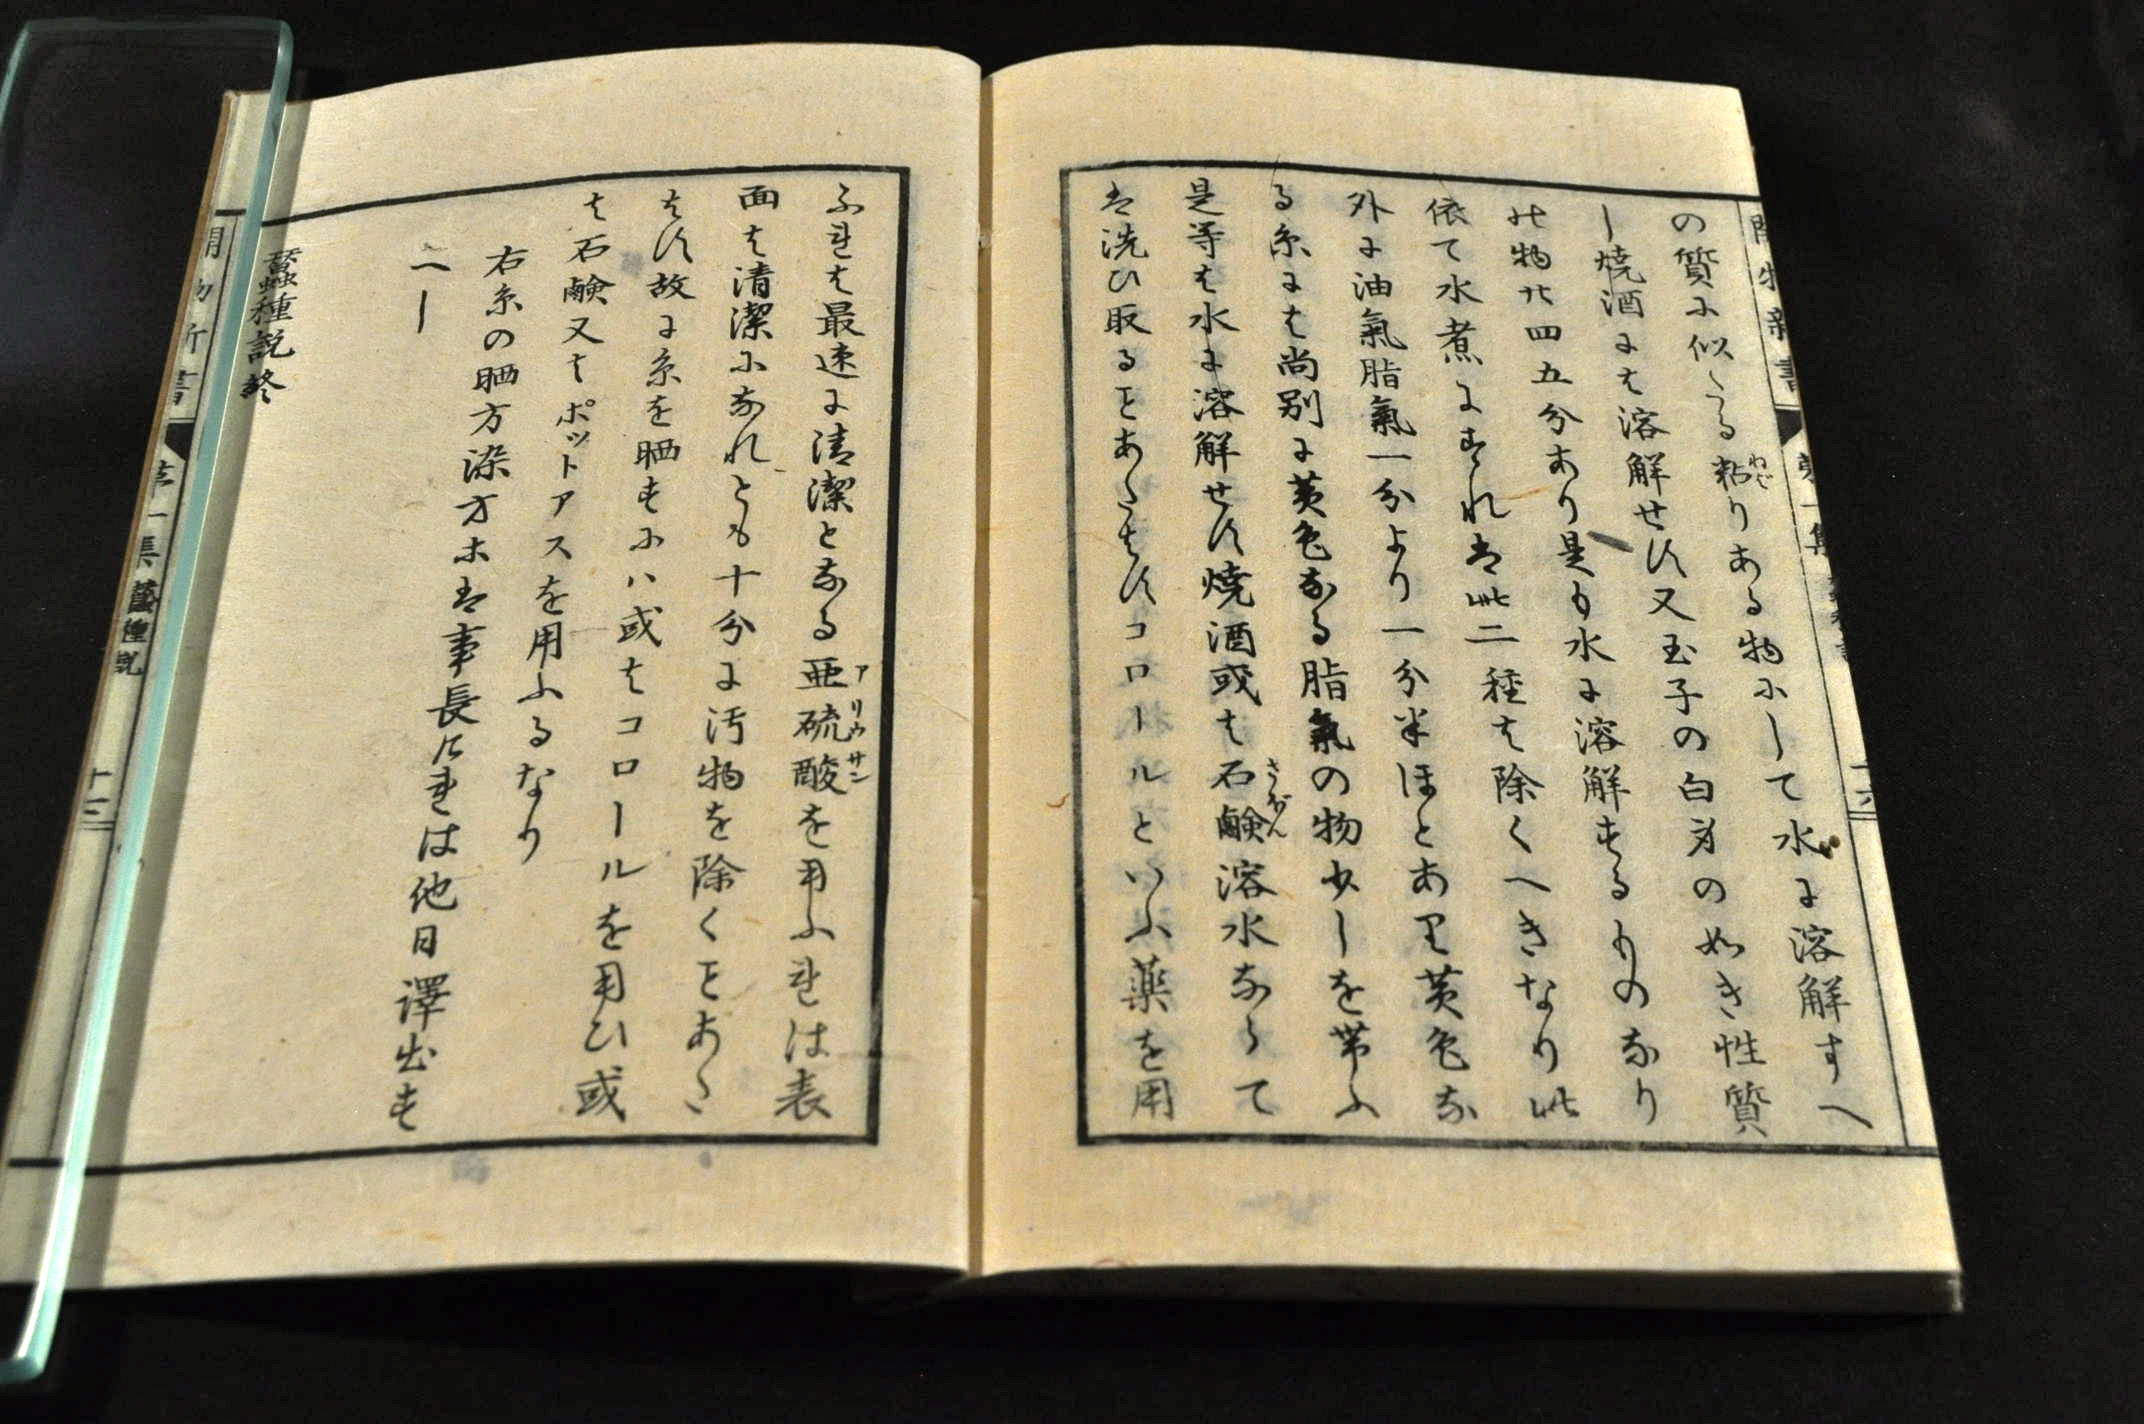 開物新書
第一集
の質に似たる粘りある物にして水に溶解すへ
ねば
し焼酒には溶解せす又玉子の白身の如き性質
の物廿四五分あり是も水に溶解するものなり
依て水煮にすれは此二種は除くへきなり此
外に油氣脂氣一分より一分半ほとあり黄色な
る糸には尚別に黄色なる脂氣の物少しを帯ふ
是等は水に溶解せす焼酒或は石鹸溶水ならて
さぼん
は洗ひ取ることあたはすコロールといふ薬を用
ふれは最速に清潔となる亜硫酸を用ふれは表
アリウサン
面は清潔になれとも十分に汚物を除くことあた
はす故に糸を晒すにハ或はコロールを用ひ或
は石鹸又はポットアスを用ふるなり
右糸の晒方染方ホは事長けれは他日譯出す
へし
蠶種説終
開物新書
第一集
蠶種説
十三